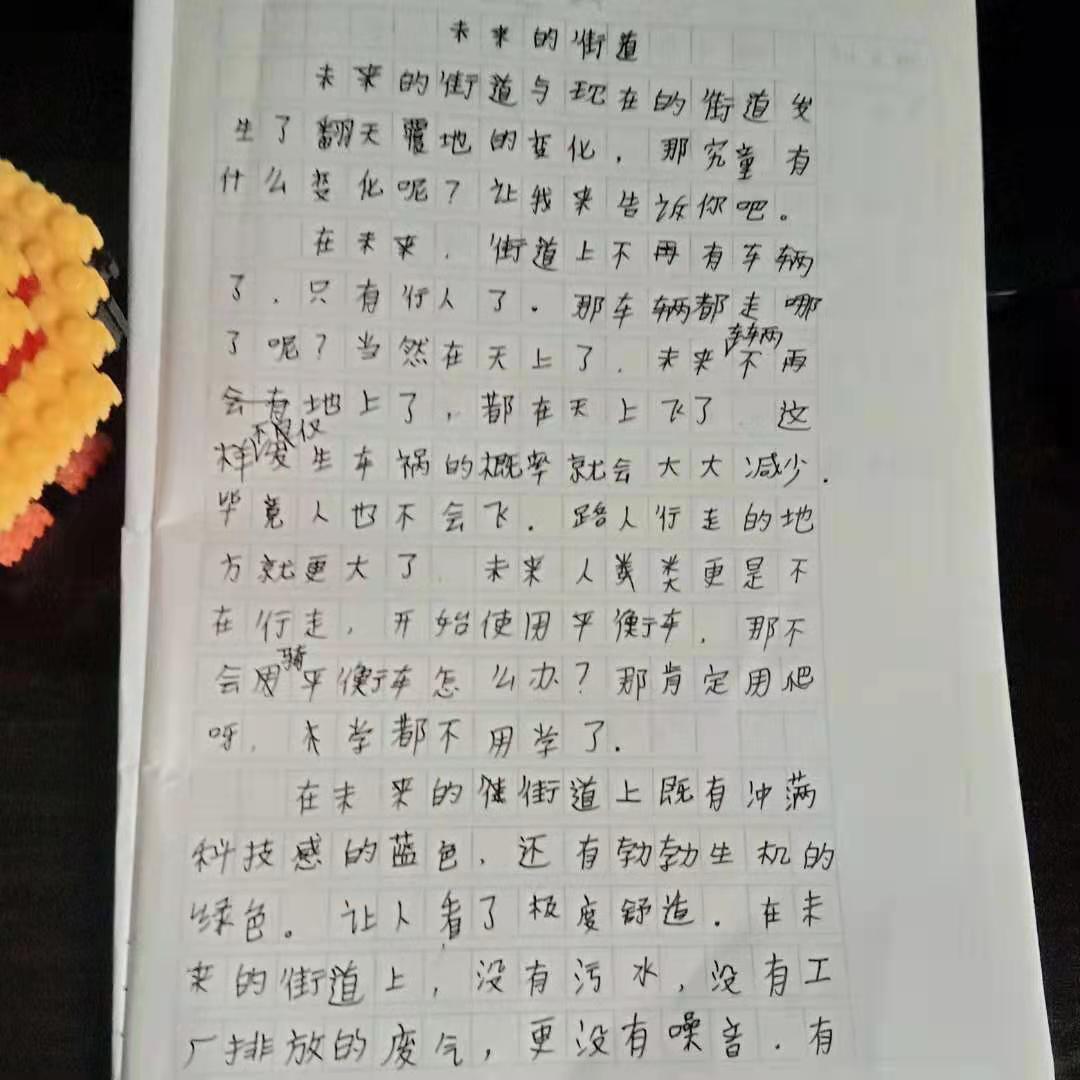 未来的街道
未来的街道与现在的街道发
生了翻天覆地的变化，那究竟有
什么变化呢？让我来告诉你吧。
在未来，街道上不再有车辆
了，只有行人了。那车辆都走哪
了呢？当然在天上了，未来车辆不再
会有地上了，都在天上飞了 这
样不仅发生车祸的概率就会大大减少.
毕竟人也不会飞．路人行走的地
方就更大了 未来人类类更是不
在行走，开始使用平衡车，那不
会用骑平衡车怎么办？那肯定用爬
呀，未学都不用学了．
在未来的街道上既有冲满
科技感的蓝色，还有勃勃生机的
绿色。让人看了极度舒造．在未
来的街道上，没有污水，没有工
厂排放的废气，更没有噪音．有